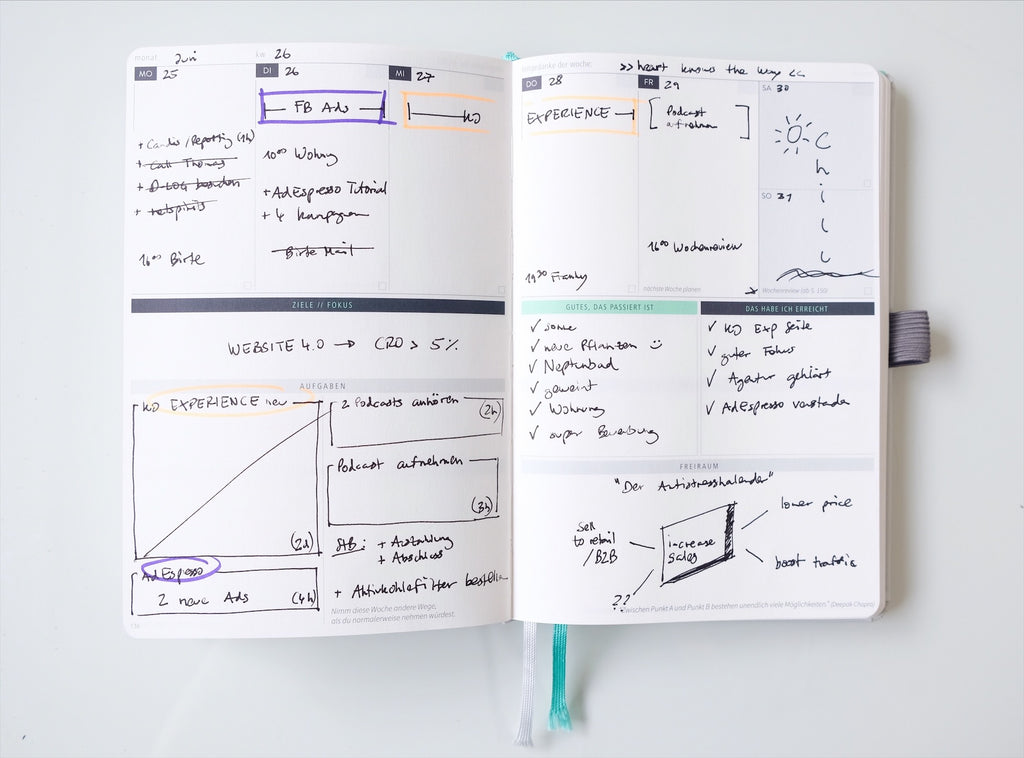 monat Juni
kw 26
MO 25
DI 26
MI 27
FB Ads
KD
+ Call Thomas
16⁰⁰ Birte
10⁰⁰ Wohng
+ AdEspresso Tutorial
+ 4 Kampagnen
Birte Mail
ZIELE // FOKUS
WEBSITE 4.0 → CRO > 5%
AUFGABEN
KD EXPERIENCE neu
(2d)
AdEspresso
2 neue Ads (4h)
2 Podcasts anhören
(2h)
Podcast aufnehmen
(3h)
+ Auszahlung
+ Abschluss
+ Aktivkohlefilter bestellen
Nimm diese Woche andere Wege,
als du normalerweise nehmen würdest.
134
gedanke der woche: >> heart knows the way <<
DO 28
FR 29
SA 30
EXPERIENCE
Podcast
aufnehmen
Chill
SO 31
16⁰⁰ Wochenreview
19³⁰ Franky
nächste Woche planen
Wochenreview (ab S. 150)
GUTES, DAS PASSIERT IST
✓ sonne
✓ neue Pflanzen ☺
✓ Neptunbad
✓ geweint
✓ Wohnung
✓ super Bewerbung
DAS HABE ICH ERREICHT
✓ KD Exp Seite
✓ guter Fokus
✓ Agentur geklärt
✓ AdEspresso verstanden
FREIRAUM
"Der Antistresskalender"
Sell
to retail
/B2B
increase
sales
lower price
boost traffic
??
"Zwischen Punkt A und Punkt B bestehen unendlich viele Möglichkeiten." (Deepak Chopra)